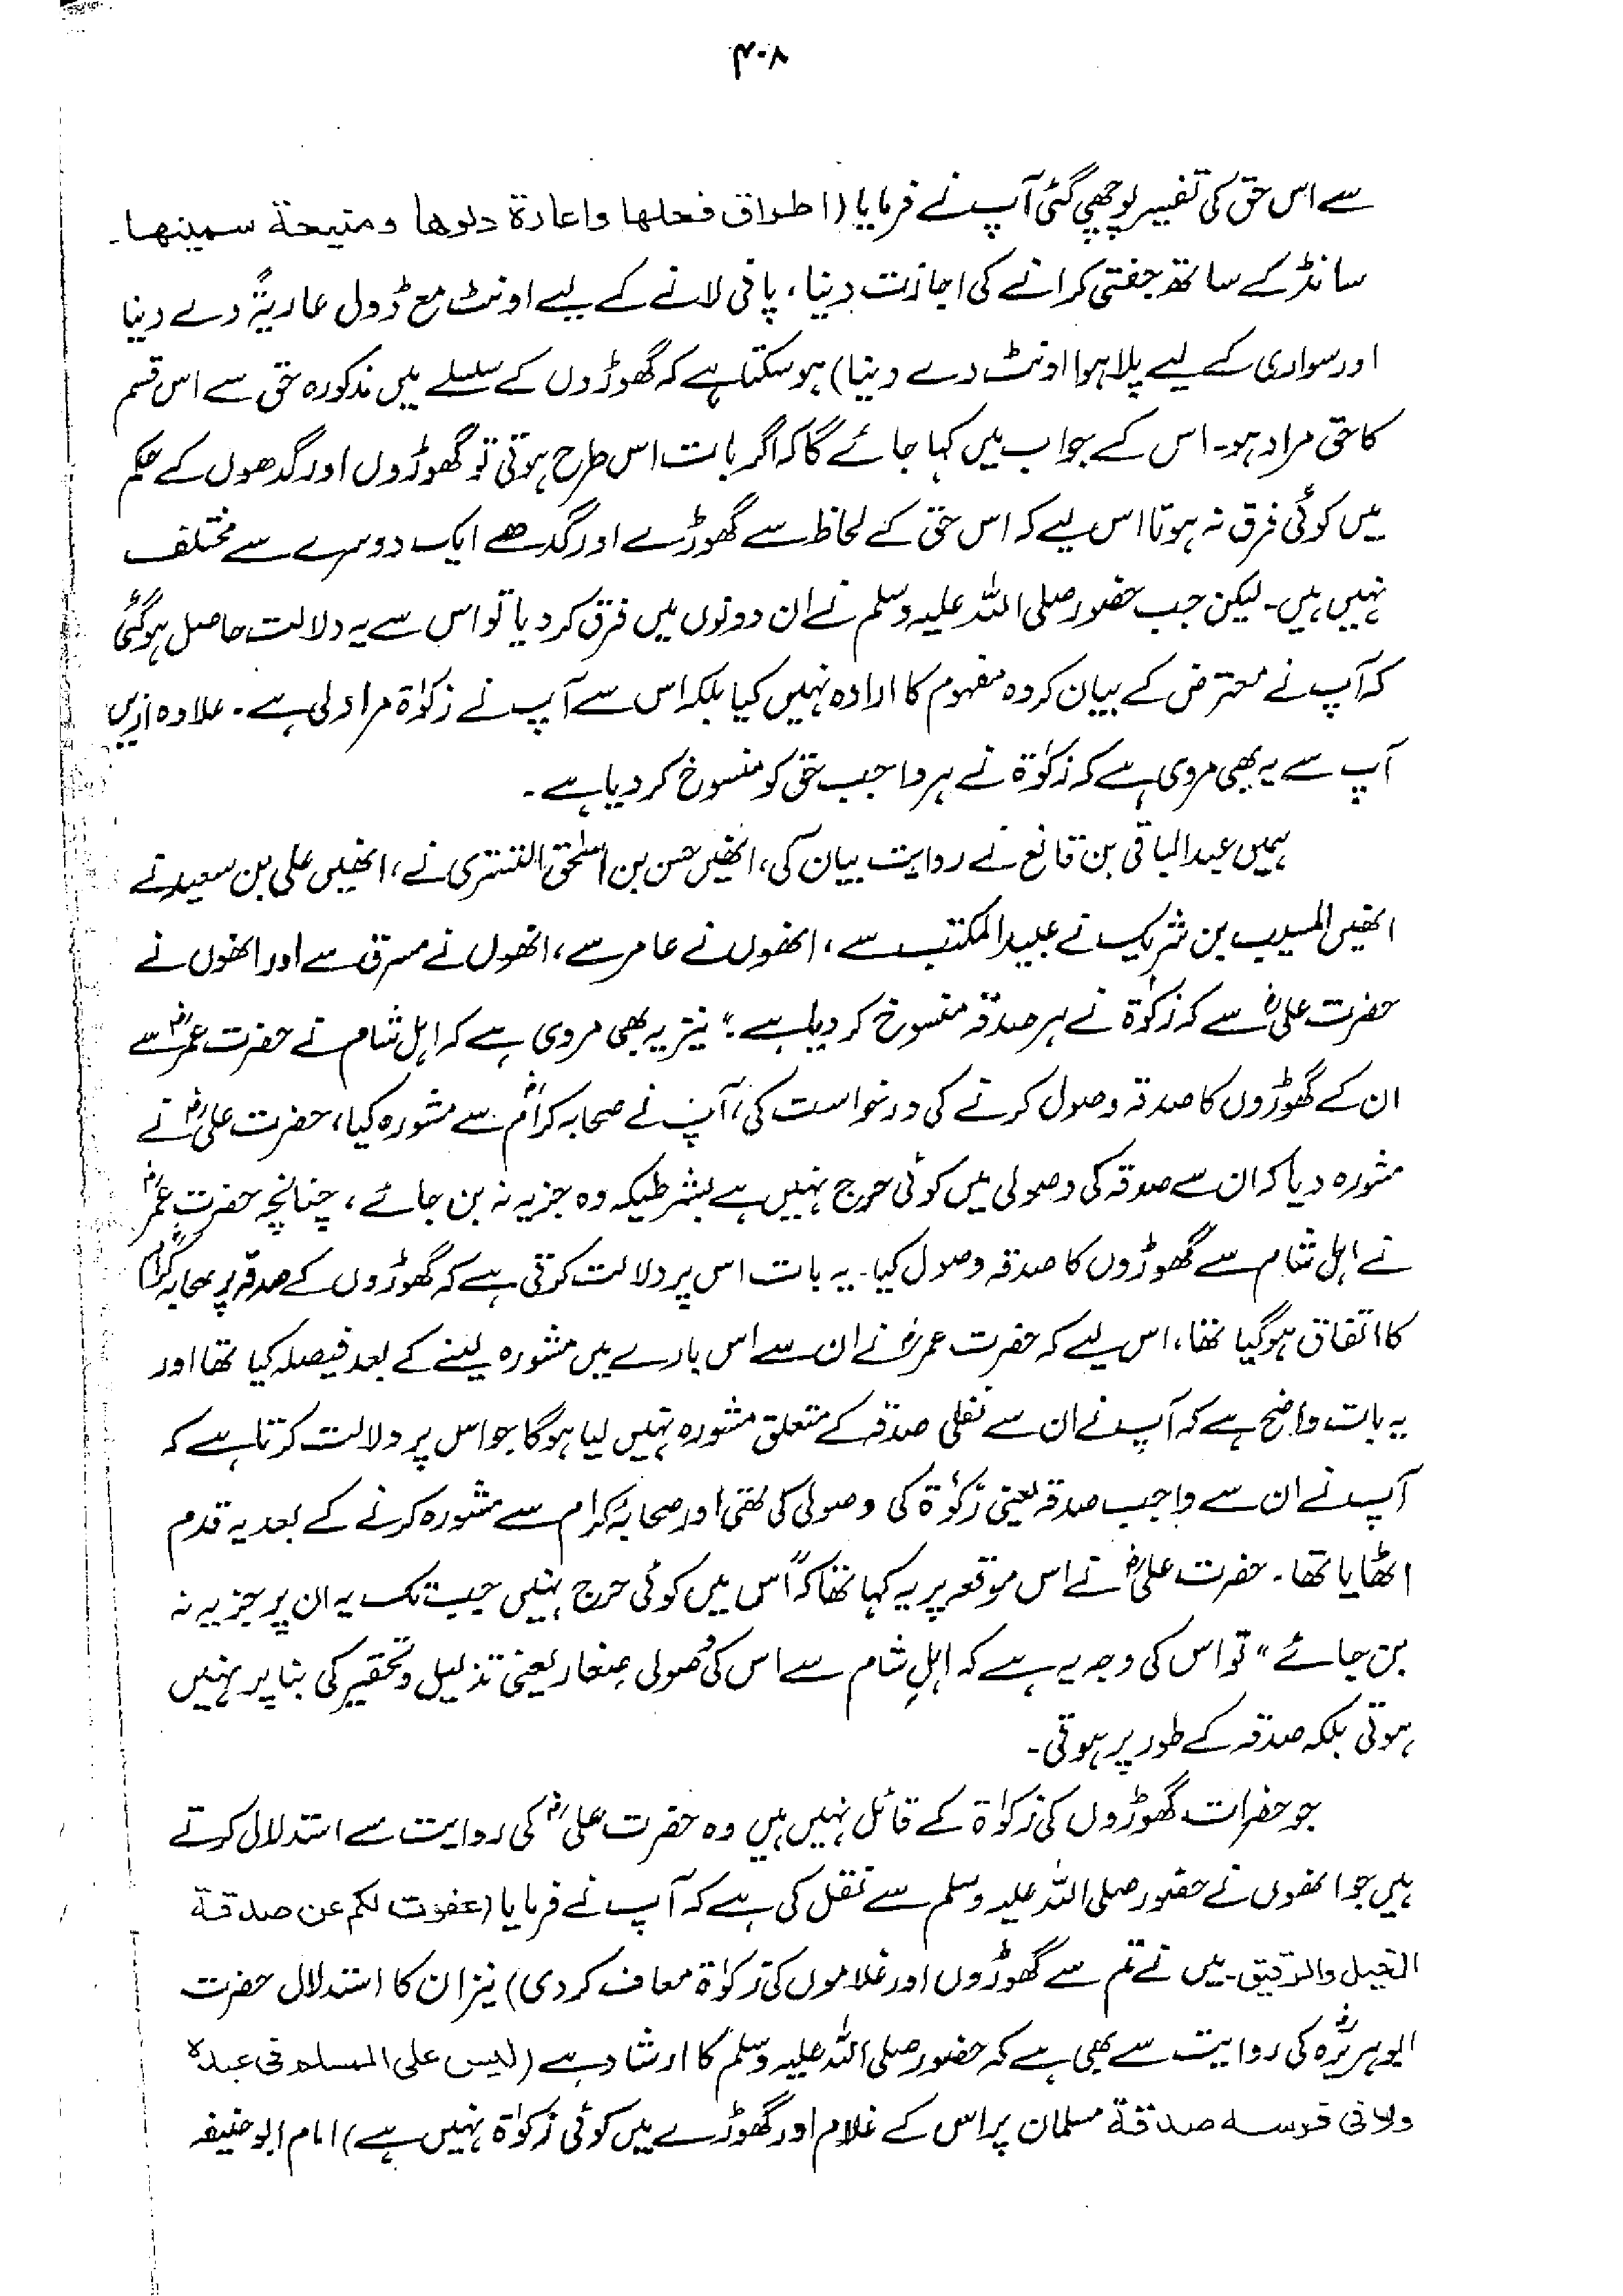 ۴۰۸
سے اس حق کی تفسیر پوچھی گئی آپ نے فرمایا (اطراق فحلھا واعارۃ دلوھا ومنیحۃ سمینھا۔
سانڈ کے ساتھ جفتی کرانے کی اجازت دینا، پانی لانے کے لیے اونٹ مع ڈول عاریۃً دے دینا
اور سواری کے لیے پلا ہوا اونٹ دے دینا) ہو سکتا ہے کہ گھوڑوں کے سلسلے میں مذکورہ حق سے اس قسم
کا حق مراد ہو۔ اس کے جواب میں کہا جائے گا کہ اگر بات اس طرح ہوتی تو گھوڑوں اور گدھوں کے حکم
میں کوئی فرق نہ ہوتا اس لیے کہ اس حق کے لحاظ سے گھوڑے اور گدھے ایک دوسرے سے مختلف
نہیں ہیں۔ لیکن جب حضور صلی اللہ علیہ وسلم نے ان دونوں میں فرق کر دیا تو اس سے یہ دلالت حاصل ہوگئی
کہ آپ نے معترض کے بیان کردہ مفہوم کا ارادہ نہیں کیا بلکہ اس سے آپ نے زکوٰۃ مراد لی ہے۔ علاوہ ازیں
آپ سے یہ بھی مروی ہے کہ زکوٰۃ نے ہر واجب حق کو منسوخ کر دیا ہے۔
ہمیں عبدالباقی بن قانع نے روایت بیان کی، انھیں حسن بن اسحٰق التستری نے، انھیں علی بن سعید نے
انھیں المسیب بن شریک نے عبید المکتب سے، انھوں نے عامر سے، انھوں نے مسرق سے اور انھوں نے
حضرت علیؓ سے کہ زکوٰۃ نے ہر صدقہ منسوخ کر دیا ہے۔" نیز یہ بھی مروی ہے کہ اہل شام نے حضرت عمرؓ سے
ان کے گھوڑوں کا صدقہ وصول کرنے کی درخواست کی، آپ نے صحابہ کرامؓ سے مشورہ کیا، حضرت علیؓ نے
مشورہ دیا کہ ان سے صدقہ کی وصولی میں کوئی حرج نہیں ہے بشرطیکہ وہ جزیہ نہ بن جائے، چنانچہ حضرت عمرؓ
نے اہل شام سے گھوڑوں کا صدقہ وصول کیا۔ یہ بات اس پر دلالت کرتی ہے کہ گھوڑوں کے صدقہ پر صحابہ کرامؓ
کا اتفاق ہوگیا تھا، اس لیے کہ حضرت عمرؓ نے ان سے اس بارے میں مشورہ لینے کے بعد فیصلہ کیا تھا اور
یہ بات واضح ہے کہ آپ نے ان سے نفلی صدقہ کے متعلق مشورہ نہیں لیا ہوگا جو اس پر دلالت کرتا ہے کہ
آپ نے ان سے واجب صدقہ یعنی زکوٰۃ کی وصولی کی تھی اور صحابۂ کرام سے مشورہ کرنے کے بعد یہ قدم
اٹھایا تھا۔ حضرت علیؓ نے اس موقعہ پر یہ کہا تھا کہ "اس میں کوئی حرج نہیں جب تک یہ ان پر جزیہ نہ
بن جائے" تو اس کی وجہ یہ ہے کہ اہلِ شام سے اس کی وصولی صغار یعنی تذلیل و تحقیر کی بنا پر نہیں
ہوتی بلکہ صدقہ کے طور پر ہوتی۔
جو حضرات گھوڑوں کی زکوٰۃ کے قائل نہیں ہیں وہ حضرت علیؓ کی روایت سے استدلال کرتے
ہیں جو انھوں نے حضور صلی اللہ علیہ وسلم سے نقل کی ہے کہ آپ نے فرمایا (عفوت لکم عن صدقۃ
الخیل والرقیق۔ میں نے تم سے گھوڑوں اور غلاموں کی زکوٰۃ معاف کر دی) نیز ان کا استدلال حضرت
ابوہریرہؓ کی روایت سے بھی ہے کہ حضور صلی اللہ علیہ وسلم کا ارشاد ہے (لیس علی المسلم فی عبدہ
ولا فی فرسہ صدقۃ مسلمان پر اس کے غلام اور گھوڑے میں کوئی زکوٰۃ نہیں ہے) امام ابو حنیفہ